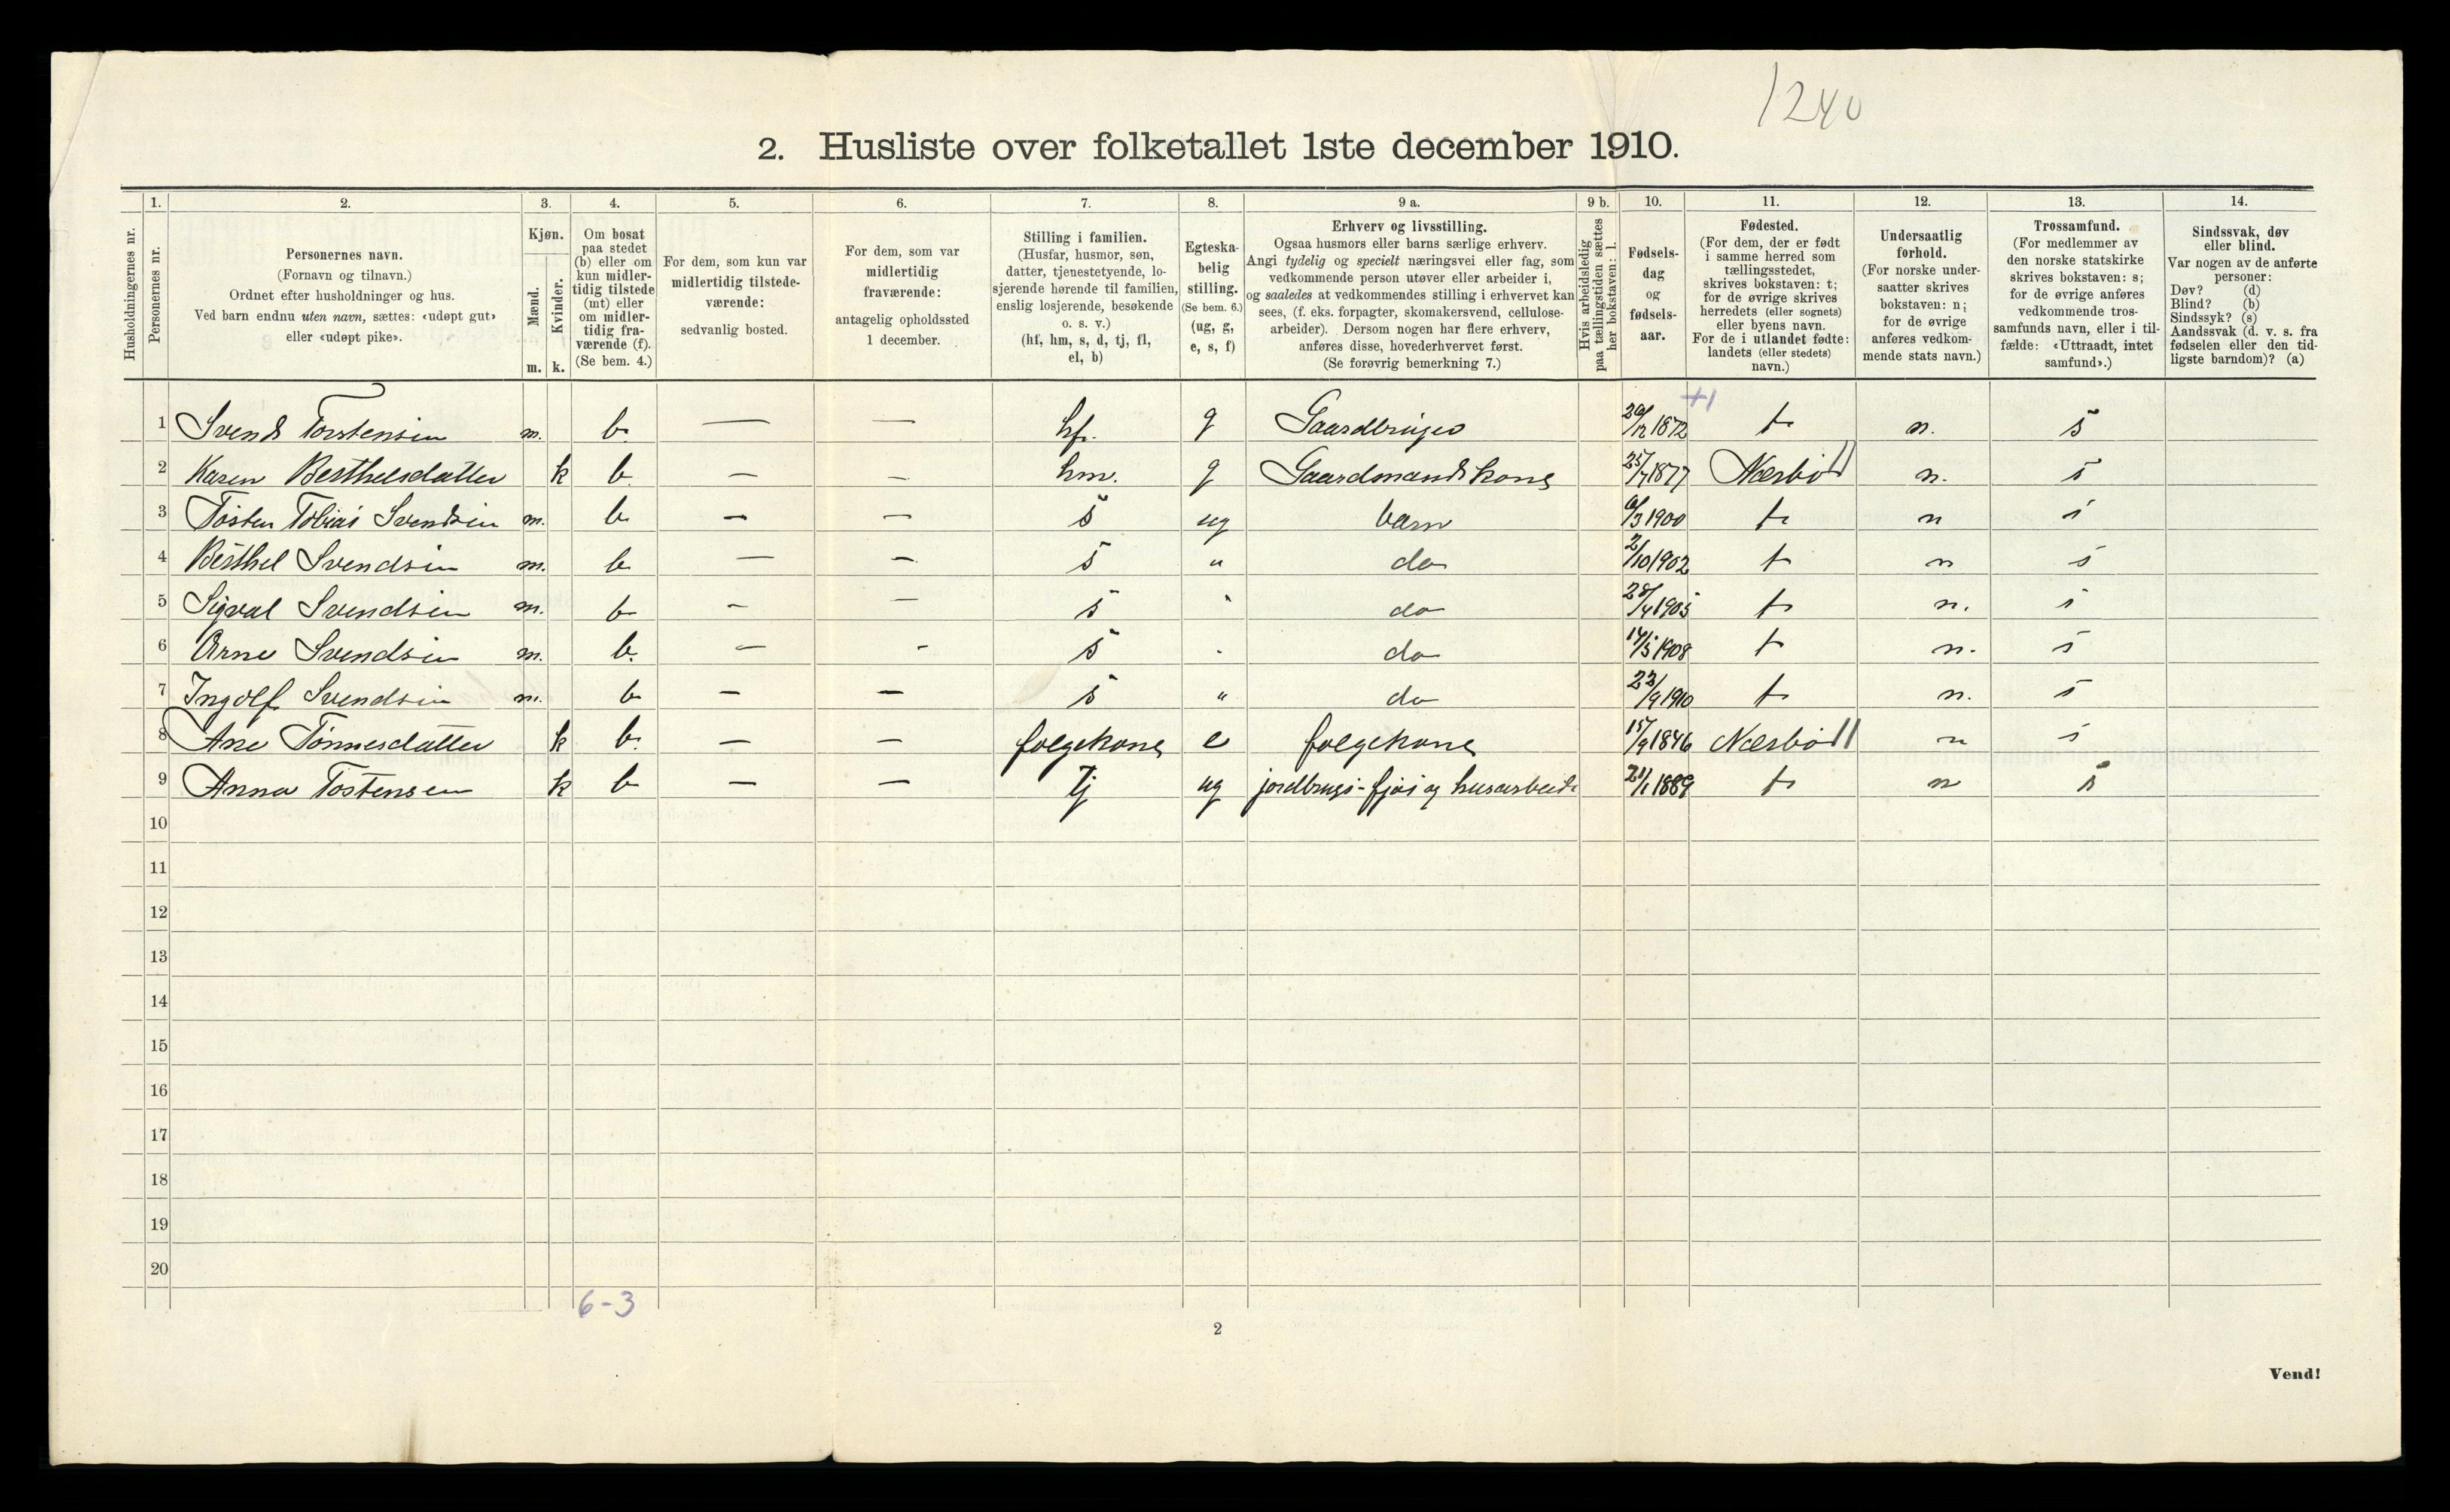 1240
2. Husliste over folketallet 1ste december 1910.
Husholdningernes nr.
1. Personernes nr.
2. Personernes navn.
(Fornavn og tilnavn.)
Ordnet efter husholdninger og hus.
Ved barn endnu uten navn, sættes: «udøpt gut»
eller «udøpt pike».
3. Kjøn.
Mænd.
Kvinder.
m. k.
4. Om bosat
paa stedet
(b) eller om
kun midler-
tidig tilstede
(mt) eller
om midler-
tidig fra-
værende (f).
(Se bem. 4.)
5. For dem, som kun var
midlertidig tilstede-
værende:
sedvanlig bosted.
6. For dem, som var
midlertidig
fraværende:
antagelig opholdssted
1 december.
7. Stilling i familien.
(Husfar, husmor, søn,
datter, tjenestetyende, lo-
sjerende hørende til familien,
enslig losjerende, besøkende
o. s. v.)
(hf, hm, s, d, tj, fl,
el, b)
8. Egteska-
belig
stilling.
(Se bem. 6.)
(ug, g,
e, s, f)
9 a. Erhverv og livsstilling.
Ogsaa husmors eller barns særlige erhverv.
Angi tydelig og specielt næringsvei eller fag, som
vedkommende person utøver eller arbeider i,
og saaledes at vedkommendes stilling i erhvervet kan
sees, (f. eks. forpagter, skomakersvend, cellulose-
arbeider). Dersom nogen har flere erhverv,
anføres disse, hovederhvervet først.
(Se forøvrig bemerkning 7.)
9 b. Hvis arbeidsledig
paa tællingstiden sættes
her bokstaven: l.
10. Fødsels-
dag
og
fødsels-
aar.
11. Fødested.
(For dem, der er født
i samme herred som
tællingsstedet,
skrives bokstaven: t;
for de øvrige skrives
herredets (eller sognets)
eller byens navn.
For de i utlandet fødte:
landets (eller stedets)
navn.)
12. Undersaatlig
forhold.
(For norske under-
saatter skrives
bokstaven: n;
for de øvrige
anføres vedkom-
mende stats navn.)
13. Trossamfund.
(For medlemmer av
den norske statskirke
skrives bokstaven: s;
for de øvrige anføres
vedkommende tros-
samfunds navn, eller i til-
fælde: «Uttraadt, intet
samfund».)
14. Sindssvak, døv
eller blind.
Var nogen av de anførte
personer:
Døv? (d)
Blind? (b)
Sindssyk? (s)
Aandssvak (d. v. s. fra
fødselen eller den tid-
ligste barndom)? (a)
+1
1 Svend Torstensen m. b. — — hf. g Gaardbruger 29/12 1872 t n. s
2 Karen Berthelsdatter k b. — — hm. g Gaardmandskone 25/7 1877 Nærbø n. s
3 Tosten Tobias Svendsen m. b. — — s ug barn 6/3 1900 t n s
4 Berthel Svendsen m. b — — s " do 2/10 1902 t n s
5 Sigval Svendsen m. b. — — s " do 28/4 1905 t n. s
6 Arne Svendsen m. b. — - s " do 14/5 1908 t n. s
7 Ingolf Svendsen m. b — — s " do 23/9 1910 t n. s
8 Ane Tønnesdatter k b. — — folgekone e folgekone 15/9 1846 Nærbø n s
9 Anna Tostensen k b — — Tj ug jordbrugs-fjøs og husarbeide 21/1 1889 t n s
10
11
12
13
14
15
16
17
18
19
20
6-3
2
Vend!